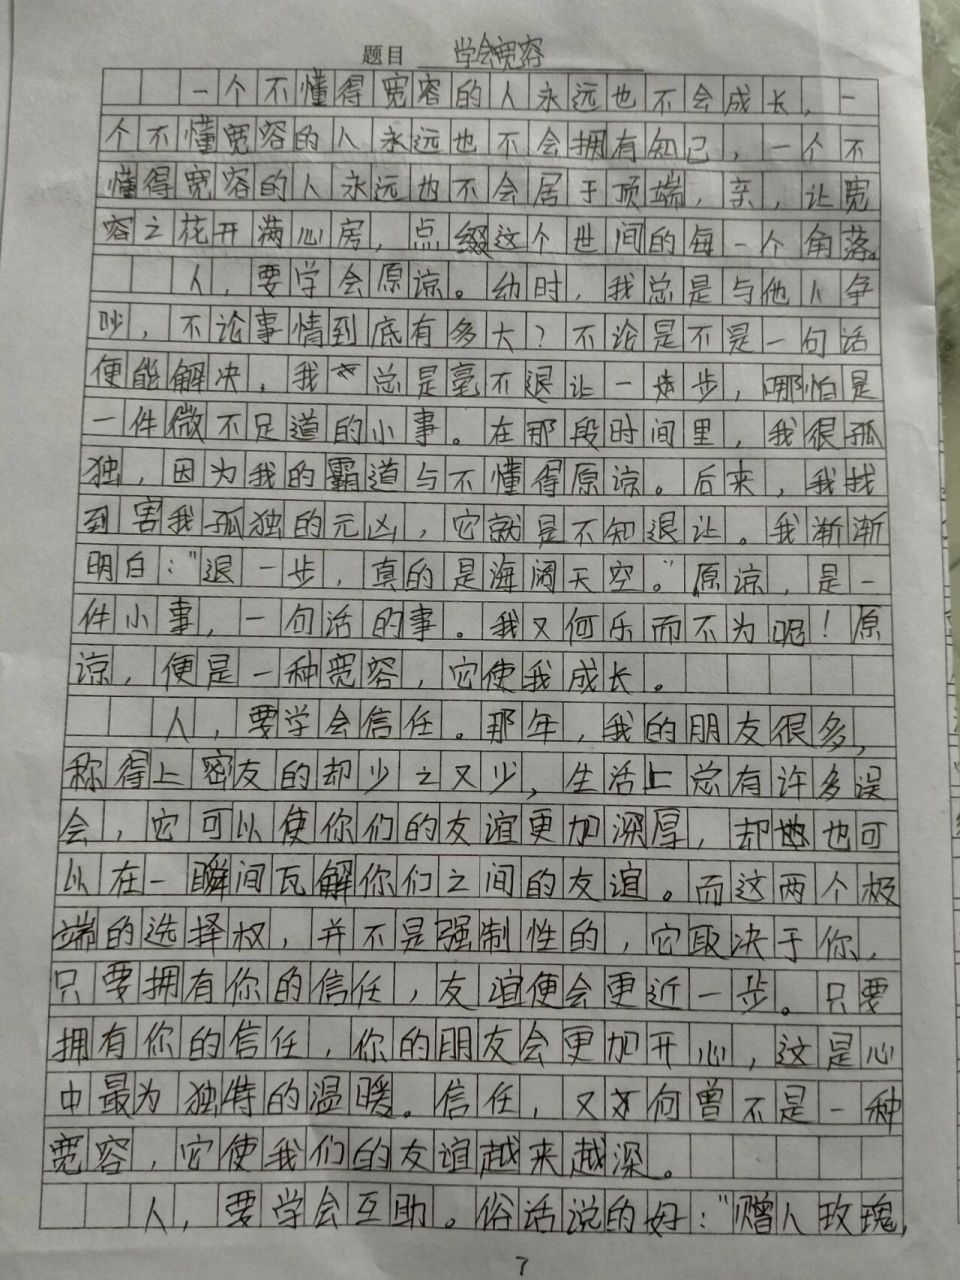 题目 学会宽容
一个不懂得宽容的人永远也不会成长,一
个不懂宽容的人永远也不会拥有知己,一个不
懂得宽容的人永远也不会居于顶端,亲,让宽
容之花开满心房,点缀这个世间的每一个角落。
人,要学会原谅。幼时,我总是与他人争
吵,不论事情到底有多大?不论是不是一句话
便能解决,我总是毫不退让一步,哪怕是
一件微不足道的小事。在那段时间里,我很孤
独,因为我的霸道与不懂得原谅。后来,我找
到害我孤独的元凶,它就是不知退让。我渐渐
明白:"退一步,真的是海阔天空。"原谅,是一
件小事,一句话的事。我又何乐而不为呢!原
谅,便是一种宽容,它使我成长。
人,要学会信任。那年,我的朋友很多,
称得上密友的却少之又少,生活上总有许多误
会,它可以使你们的友谊更加深厚,却也可
以在一瞬间瓦解你们之间的友谊。而这两个极
端的选择权,并不是强制性的,它取决于你,
只要拥有你的信任,友谊便会更近一步。只要
拥有你的信任,你的朋友会更加开心,这是心
中最为独特的温暖。信任,又何曾不是一种
宽容,它使我们的友谊越来越深。
人,要学会互助。俗话说的好:"赠人玫瑰,
7